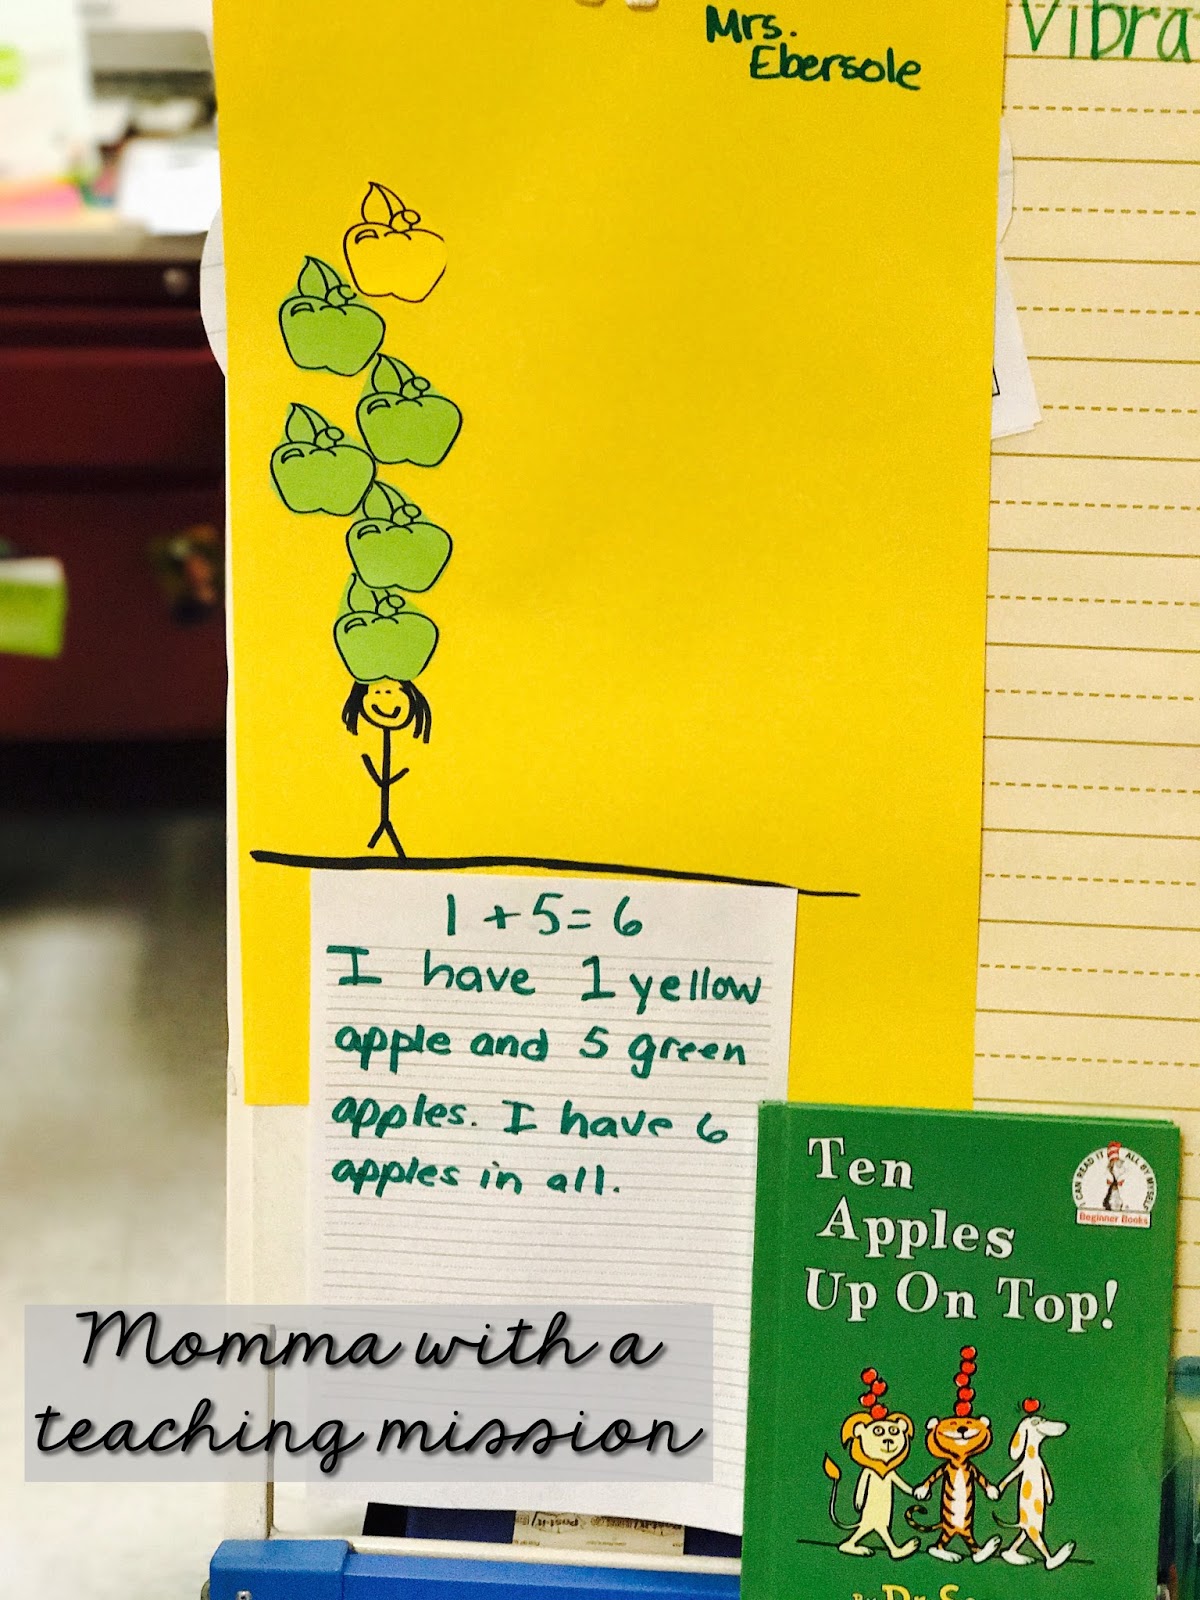 Mrs.
Ebersole
Vibra
1 + 5 = 6
I have 1 yellow
apple and 5 green
apples. I have 6
apples in all.
Ten
Apples
Up On Top!
I CAN READ IT ALL BY MYSELF
Beginner Books
By Dr. Se
Momma with a
teaching mission
Post-it